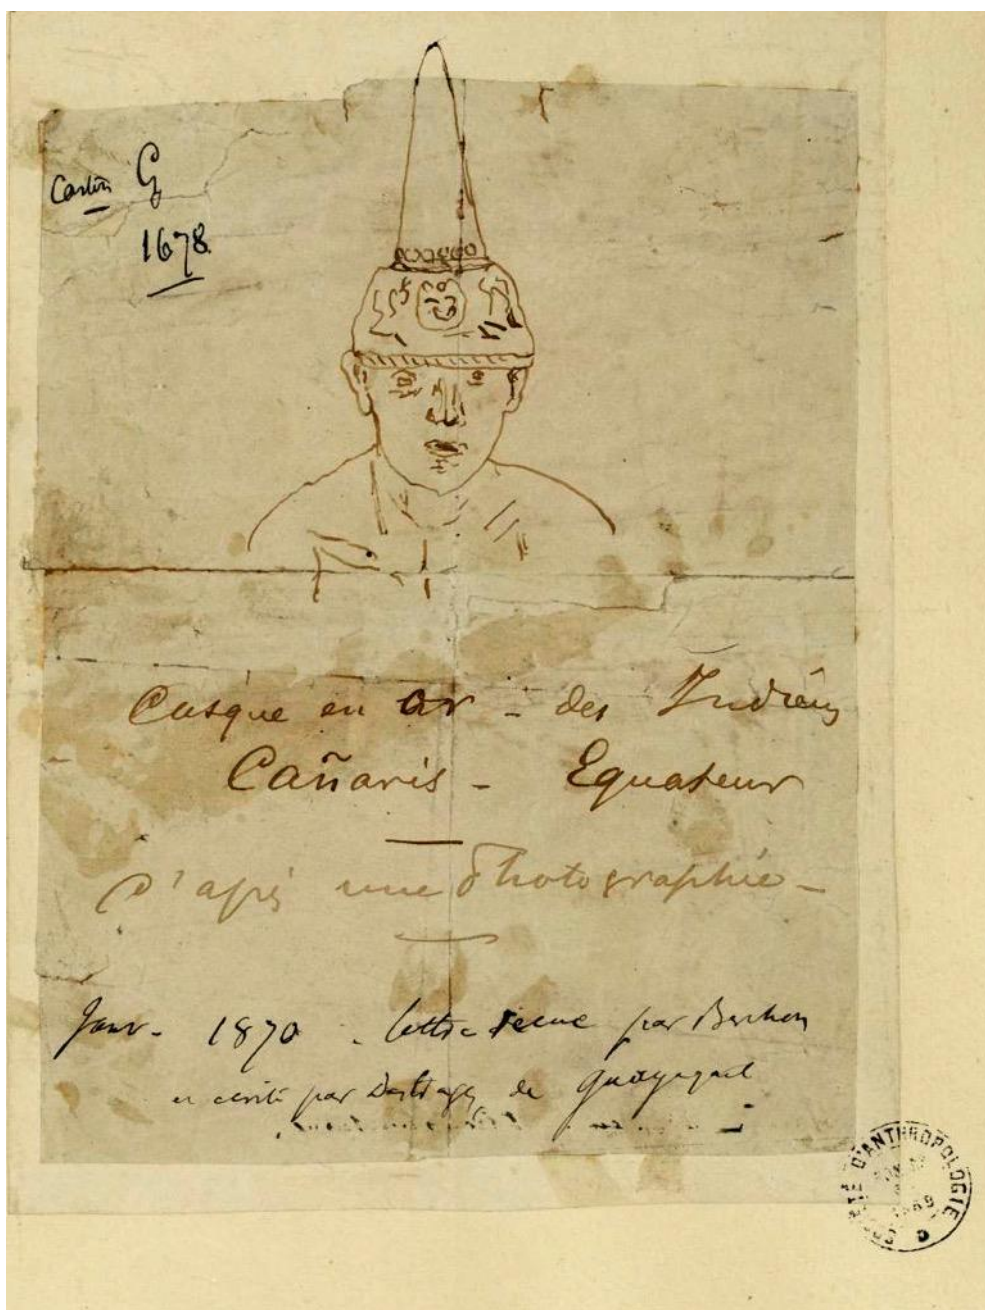 Carton G
1678
Casque en or - des Indiens
Cañaris - Equateur
D'après une Photographie -
Janv. 1870 . lettre recue par Berchon
et écrite par de Guayaquil
SOCIÉTÉ D'ANTHROPOLOGIE